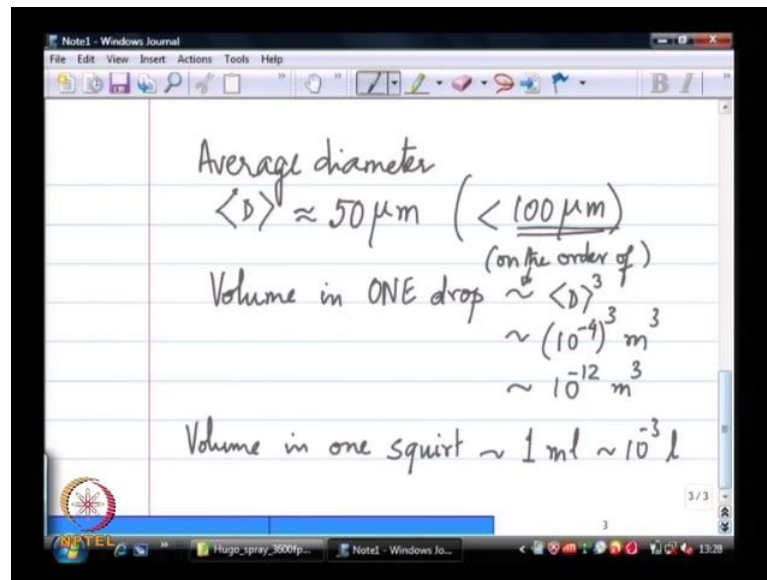 Note1 - Windows Journal
File Edit View Insert Actions Tools Help
B I
Average diameter
<D> ≈ 50 μm (< 100 μm)
(on the order of)
Volume in ONE drop ~ <D>³
~ (10⁻⁴)³ m³
~ 10⁻¹² m³
Volume in one squirt ~ 1 ml ~ 10⁻³ l
3/3
3
NPTEL
Hugo_spray_3600fp...
Note1 - Windows Jo...
13:28